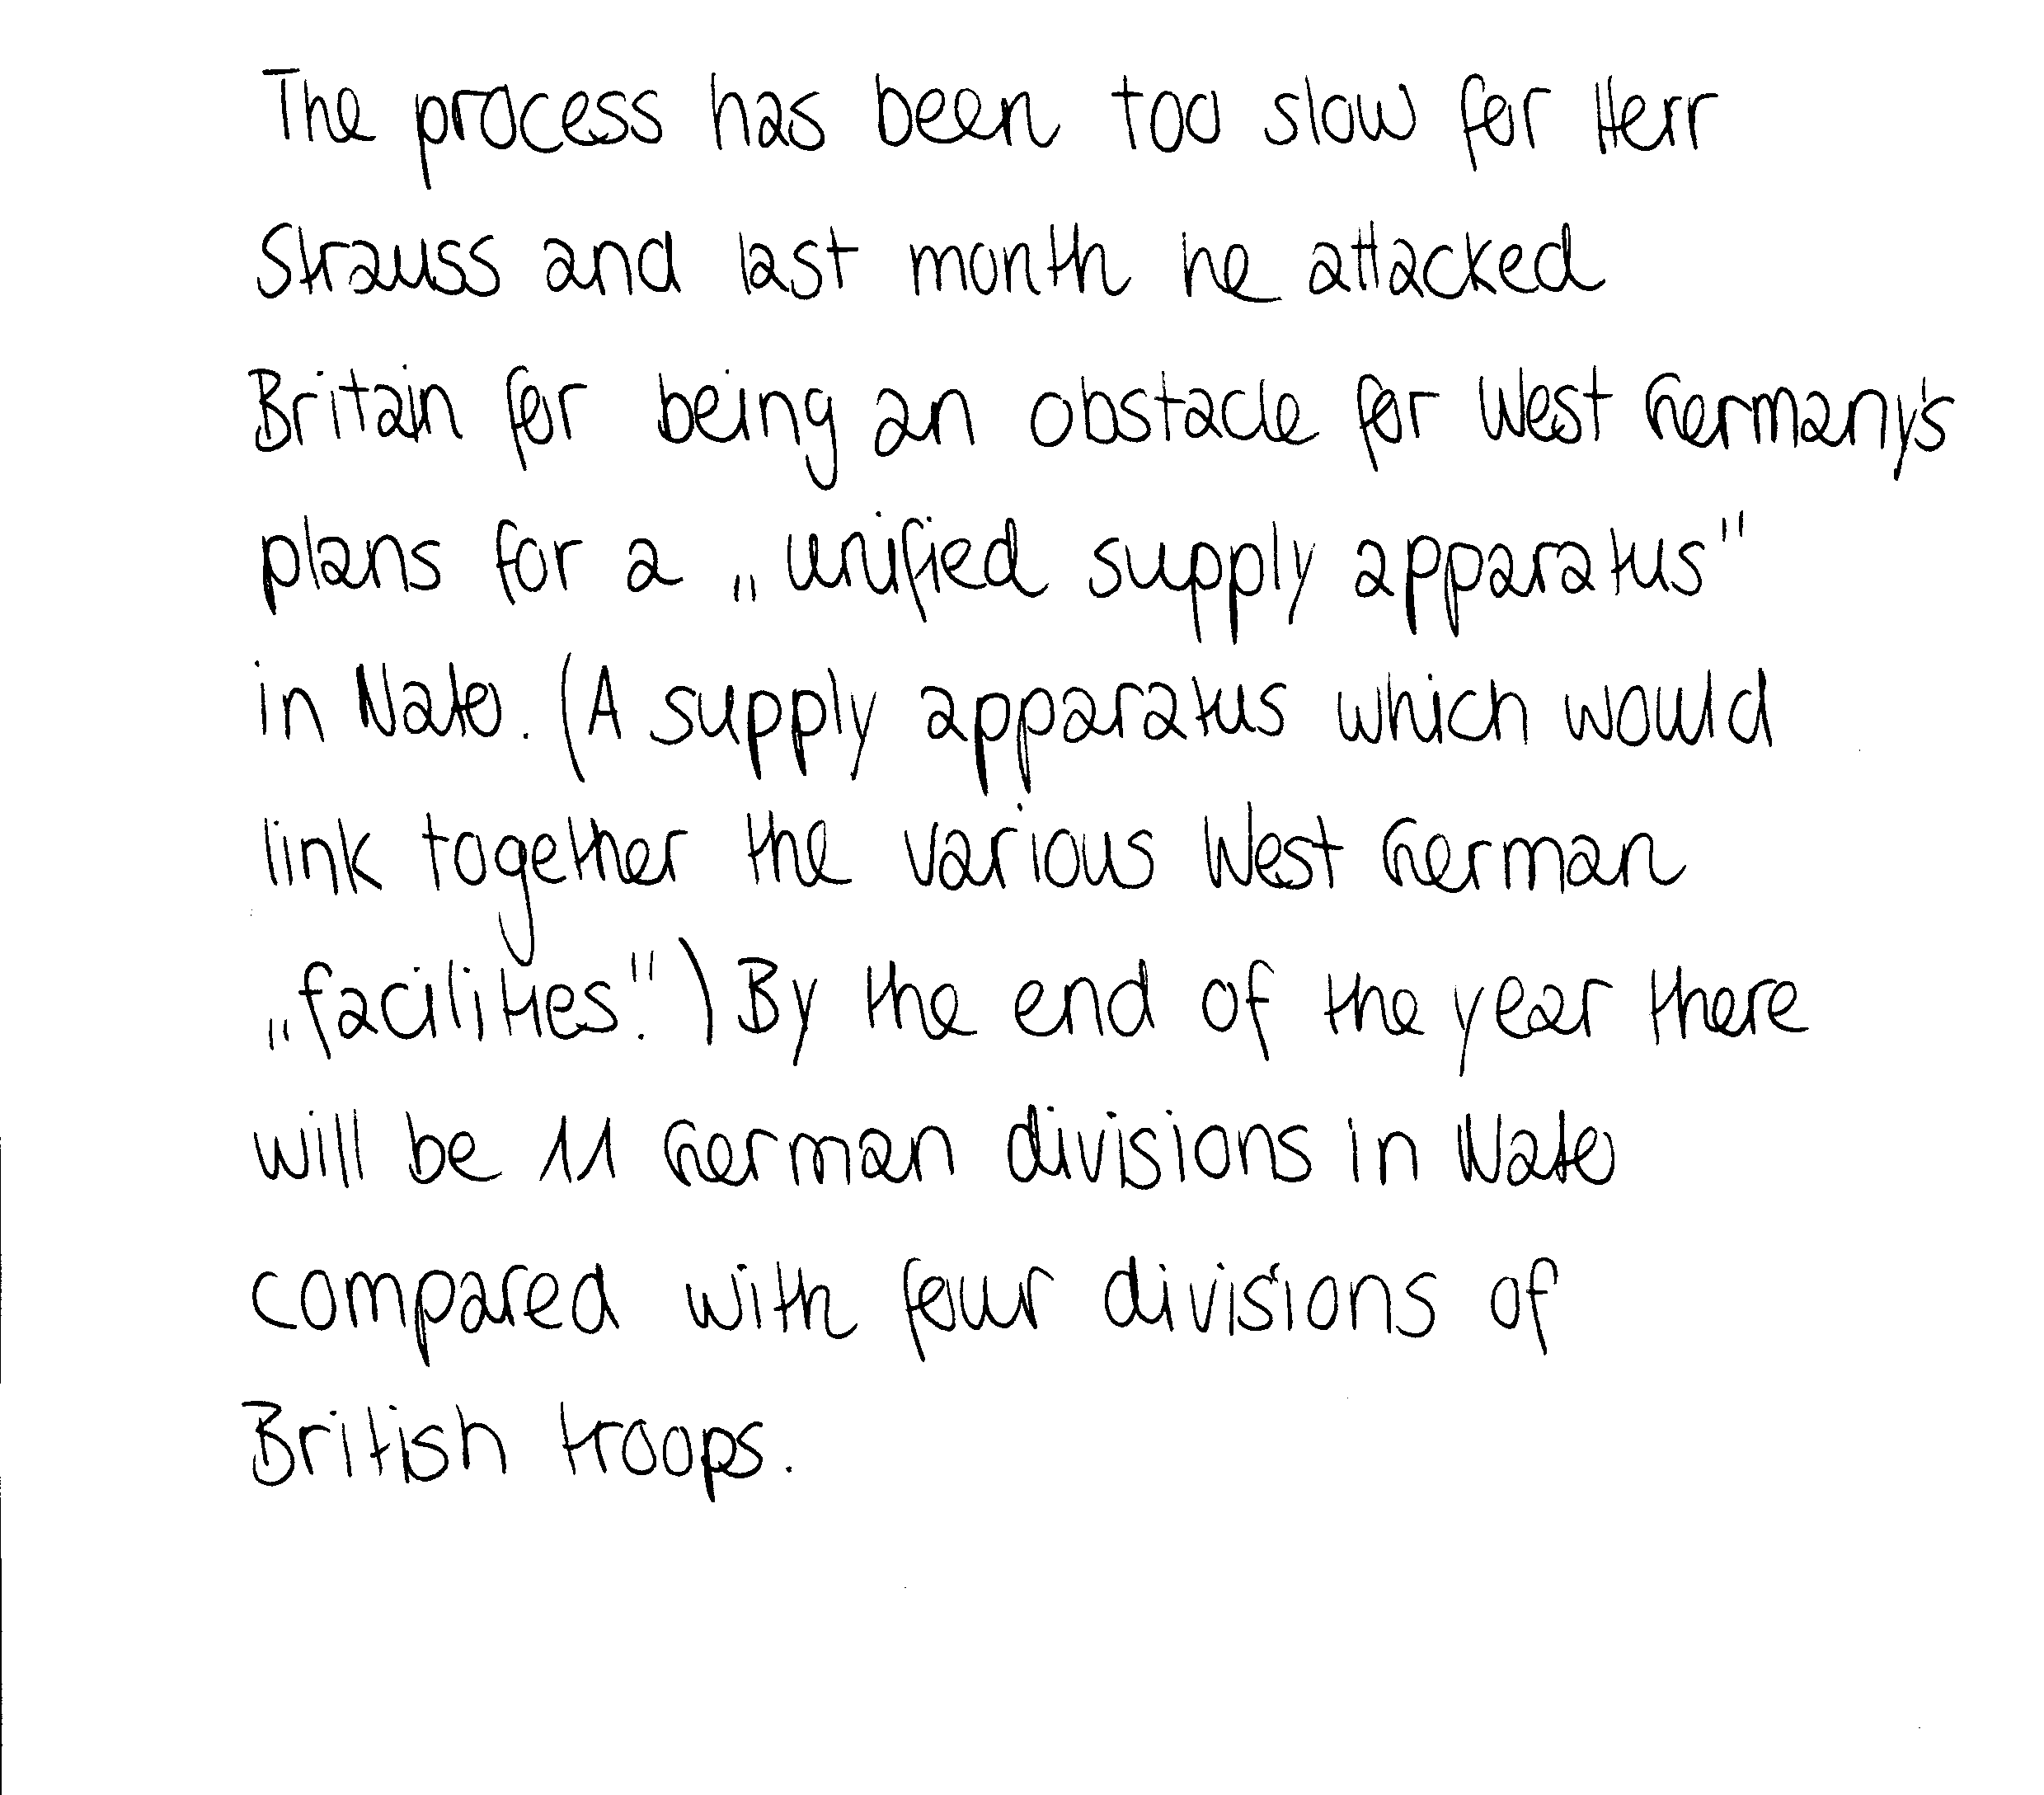 The process has been too slow for Herr
Strauss and last month he attacked
Britain for being an obstacle for West Germany's
plans for a „unified supply apparatus"
in Nato. (A supply apparatus which would
link together the various West German
„facilities.") By the end of the year there
will be 11 German divisions in Nato
compared with four divisions of
British troops.